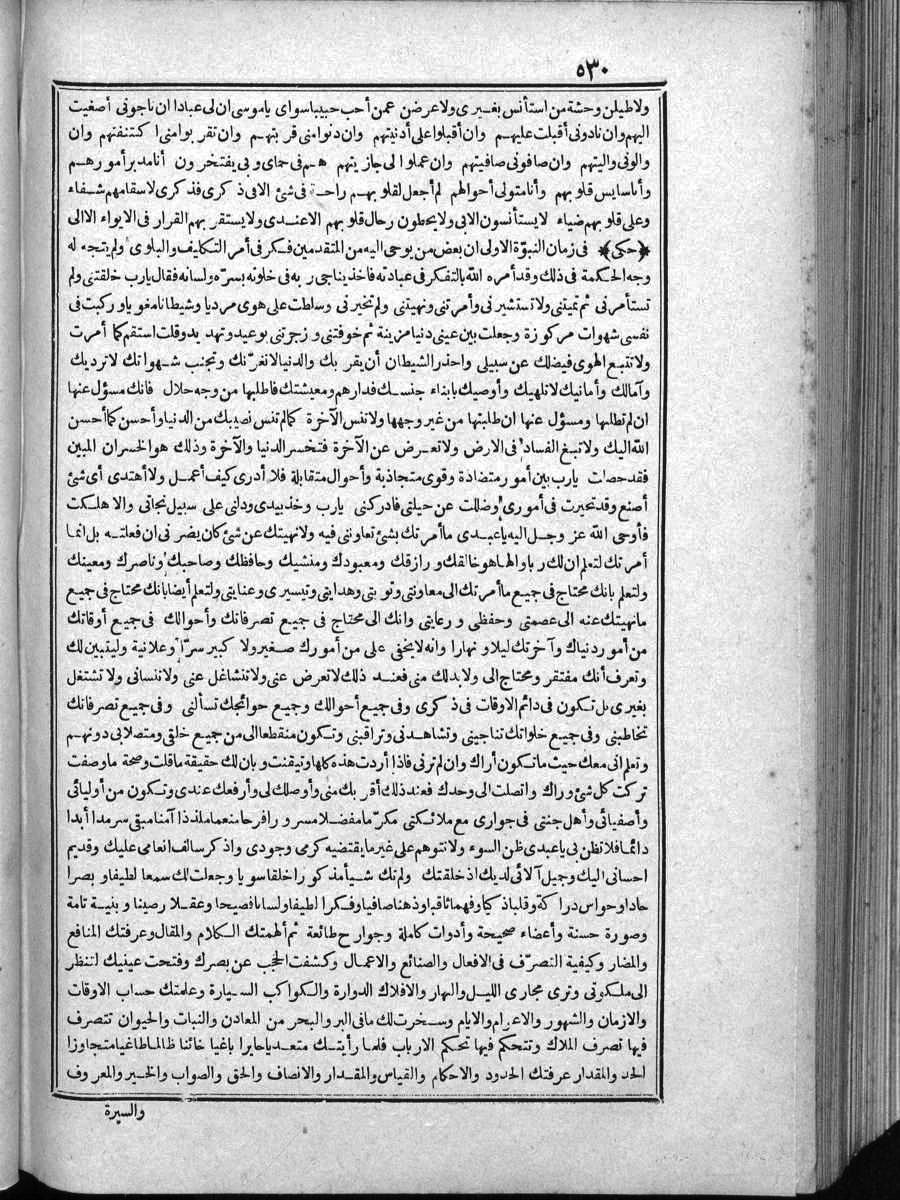 ٥٣٠
ولاطيلن وحشة من استأنس بغيرى ولاعرضن عمن أحب حبيبا سواى ياموسى ان لى عبادا ان ناجونى أصغيت
اليهم وان نادونى أقبلت عليهم وان أقبلوا على أدنيتهم وان دنوا منى قربتهم وان تقربوا منى اكتنفتهم وان
والونى واليتهم وان صافونى صافيتهم وان عملوا لى جازيتهم هم فى حماى وبى يفتخرون أنا مدبر أمورهم
وأنا سايس قلوبهم وأنا متولى أحوالهم لم أجعل لقلوبهم راحة فى شئ الا فى ذكرى فذكرى لاسقامهم شفاء
وعلى قلوبهم ضياء لايستأنسون الابى ولايحطون رحال قلوبهم الاعندى ولايستقر بهم القرار فى الايواء الاالى
﴿حكى﴾ فى زمان النبوّة الاولى ان بعض من يوحى اليه من المتقدمين فكر فى أمر التكليف والبلوى ولم يتجه له
وجه الحكمة فى ذلك وقد أمره الله بالتفكر فى عبادته فأخذ يناجى ربه فى خلواته بسرّه ولسانه فقال يارب خلقتنى ولم
تستأمرنى ثم تميتنى ولا تستشيرنى وأمرتنى ونهيتنى ولم تخيرنى وسلطت على هوى مرديا وشيطانا مغويا وركبت فى
نفسى شهوات مركوزة وجعلت بين عينى دنيا مزينة ثم خوفتنى وزجرتنى بوعيد وتهديد وقلت استقم كما أمرت
ولا تتبع الهوى فيضلك عن سبيلى واحذر الشيطان أن يقر بك والدنيا لاتغرّنك وتجنب شهواتك لاترديك
وآمالك وأمانيك لاتلهيك وأوصيك بابناء جنسك فدارهم ومعيشتك فاطلبها من وجه حلال فانك مسؤل عنها
ان لم تطلبها ومسؤل عنها ان طلبتها من غير وجهها ولاتنس الآخرة كما لم تنس نصيبك من الدنيا وأحسن كما أحسن
الله اليك ولا تبغ الفساد فى الارض ولاتعرض عن الآخرة فتخسر الدنيا والآخرة وذلك هو الخسران المبين
فقد حصلت يارب بين أمور متضادة وقوى متجاذبة وأحوال متقابلة فلا أدرى كيف أعمل ولا أهتدى أى شئ
أصنع وقد تحيرت فى أمورى وضللت عن حيلتى فادركنى يارب وخذ بيدى ودلنى على سبيل نجاتى والا هلكت
فأوحى الله عز وجل اليه ياعبدى ما أمرتك بشئ تعاوننى فيه ولانهيتك عن شئ كان يضرنى ان فعلته بل انما
أمرتك لتعلم ان لك ربا والها هو خالقك ورازقك ومعبودك ومنشيك وحافظك وصاحبك وناصرك ومعينك
ولتعلم بانك محتاج فى جميع ما أمرتك الى معاونتى وتوبتى وهدايتى وتيسيرى وعنايتى ولتعلم أيضا بانك محتاج فى جميع
مانهيتك عنه الى عصمتى وحفظى ورعايتى وانك الى محتاج فى جميع تصرفاتك وأحوالك فى جميع أوقاتك
من أمور دنياك وآخرتك ليلا ونهارا وانه لايخفى على من أمورك صغير ولا كبير سرّا وعلانية وليتبين لك
وتعرف أنك مفتقر ومحتاج الى ولابد لك منى فعند ذلك لاتعرض عنى ولاتتشاغل عنى ولاتنسانى ولاتشتغل
بغيرى بل تكون فى دائم الاوقات فى ذكرى وفى جميع أحوالك وجميع حوائجك تسألنى وفى جميع تصرفاتك
تخاطبنى وفى جميع خلواتك تناجينى وتشاهدنى وتراقبنى وتكون منقطعا الى من جميع خلقى ومتصلا بى دونهم
وتعلم انى معك حيث ماتكون أراك وان لم ترنى فاذا أردت هذه كلها وتيقنت وبان لك حقيقة ماقلت وصحة ماوصفت
تركت كل شئ وراك واتصلت الى وحدك فعند ذلك أقربك منى وأوصلك لى وأرفعك عندى وتكون من أوليائى
وأصفيائى وأهل جنتى فى جوارى مع ملائكتى مكرّما مفضلا مسرورا فرحا منعما ملذذا آمنا مبقى سرمدا أبدا
دائما فلا تظن بى ياعبدى ظن السوء ولاتتوهم على غير مايقتضيه كرمى وجودى واذكر سالف انعامى عليك وقديم
احسانى اليك وجيل آلائى لديك اذ خلقتك ولم تك شيأ مذكورا خلقا سويا وجعلت لك سمعا لطيفا وبصرا
حادا وحواس دراكة وقلبا ذكيا وفهما ثاقبا وذهنا صافيا وفكرا لطيفا ولسانا فصيحا وعقلا رصينا وبنية تامة
وصورة حسنة وأعضاء صحيحة وأدوات كاملة وجوارح طائعة ثم ألهمتك الكلام والمقال وعرفتك المنافع
والمضار وكيفية التصرّف فى الافعال والصنائع والاعمال وكشفت الحجب عن بصرك وفتحت عينيك لتنظر
الى ملكوتى وترى مجارى الليل والنهار والافلاك الدوارة والكواكب السيارة وعلمتك حساب الاوقات
والازمان والشهور والاعوام والايام وسخرت لك مافى البر والبحر من المعادن والنبات والحيوان تتصرف
فيها تصرف الملاك وتتحكم فيها تحكم الارباب فلما رأيتك متعديا جايرا باغيا خائنا ظالما طاغيا متجاوزا
الحد والمقدار عرفتك الحدود والاحكام والقياس والمقدار والانصاف والحق والصواب والخير والمعروف
والسيرة